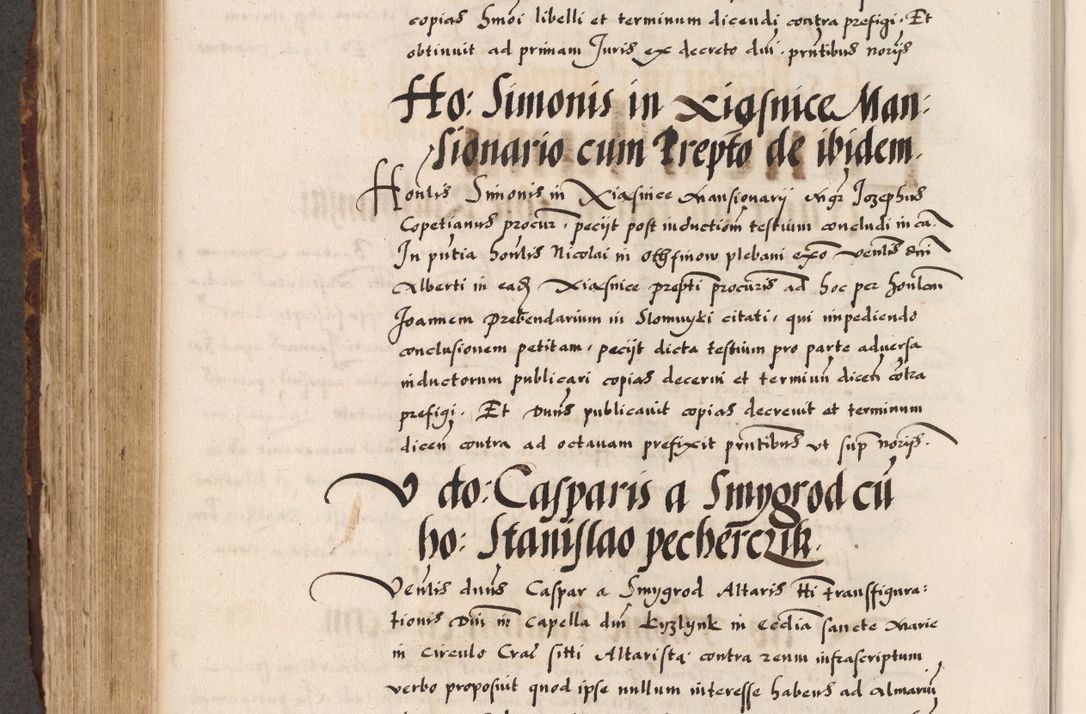 copias hmoi libelli et terminum dicendi contra prefigi. Et
obtinuit ad primam Juris ex decreto dni. pntibus norijs
Ho: Simonis in Xiąsnice Man-
sionario cum Prepto de ibidem.
Honlis Simonis in Xiąsnice Mansionarij Mgr Jozephus
Copetianus procur, pecijt post inductiom testium concludi in ca.
In pntia honlis Nicolai in Othfinow plebani exo venlis dni
Alberti in ead Xiąsnice prepti procuris ad hoc per honlem
Joannem Prebendarium in Slomnyki citati, qui impediendo
conclusionem petitam, pecijt dicta testium pro parte adversa
inductorum publicari copias decerni et termiun dicen cotra
prefigi. Et Duns publicavit copias decrevit et terminum
dicen contra ad octavam prefixit pntibus ut sup norijs.
V do: Casparis a Smygrod cu
ho: Stanislao pecherczik.
Venlis duns Caspar a Smygrod Altaris tti transfigura-
tionis Dni in Capella dni Kyzlynk in Ecclia sancte Marie
in Circulo Crac sitti Altarista contra reum infrascriptum
verbo proposuit quod ipse nullum interesse habens ad Almariu